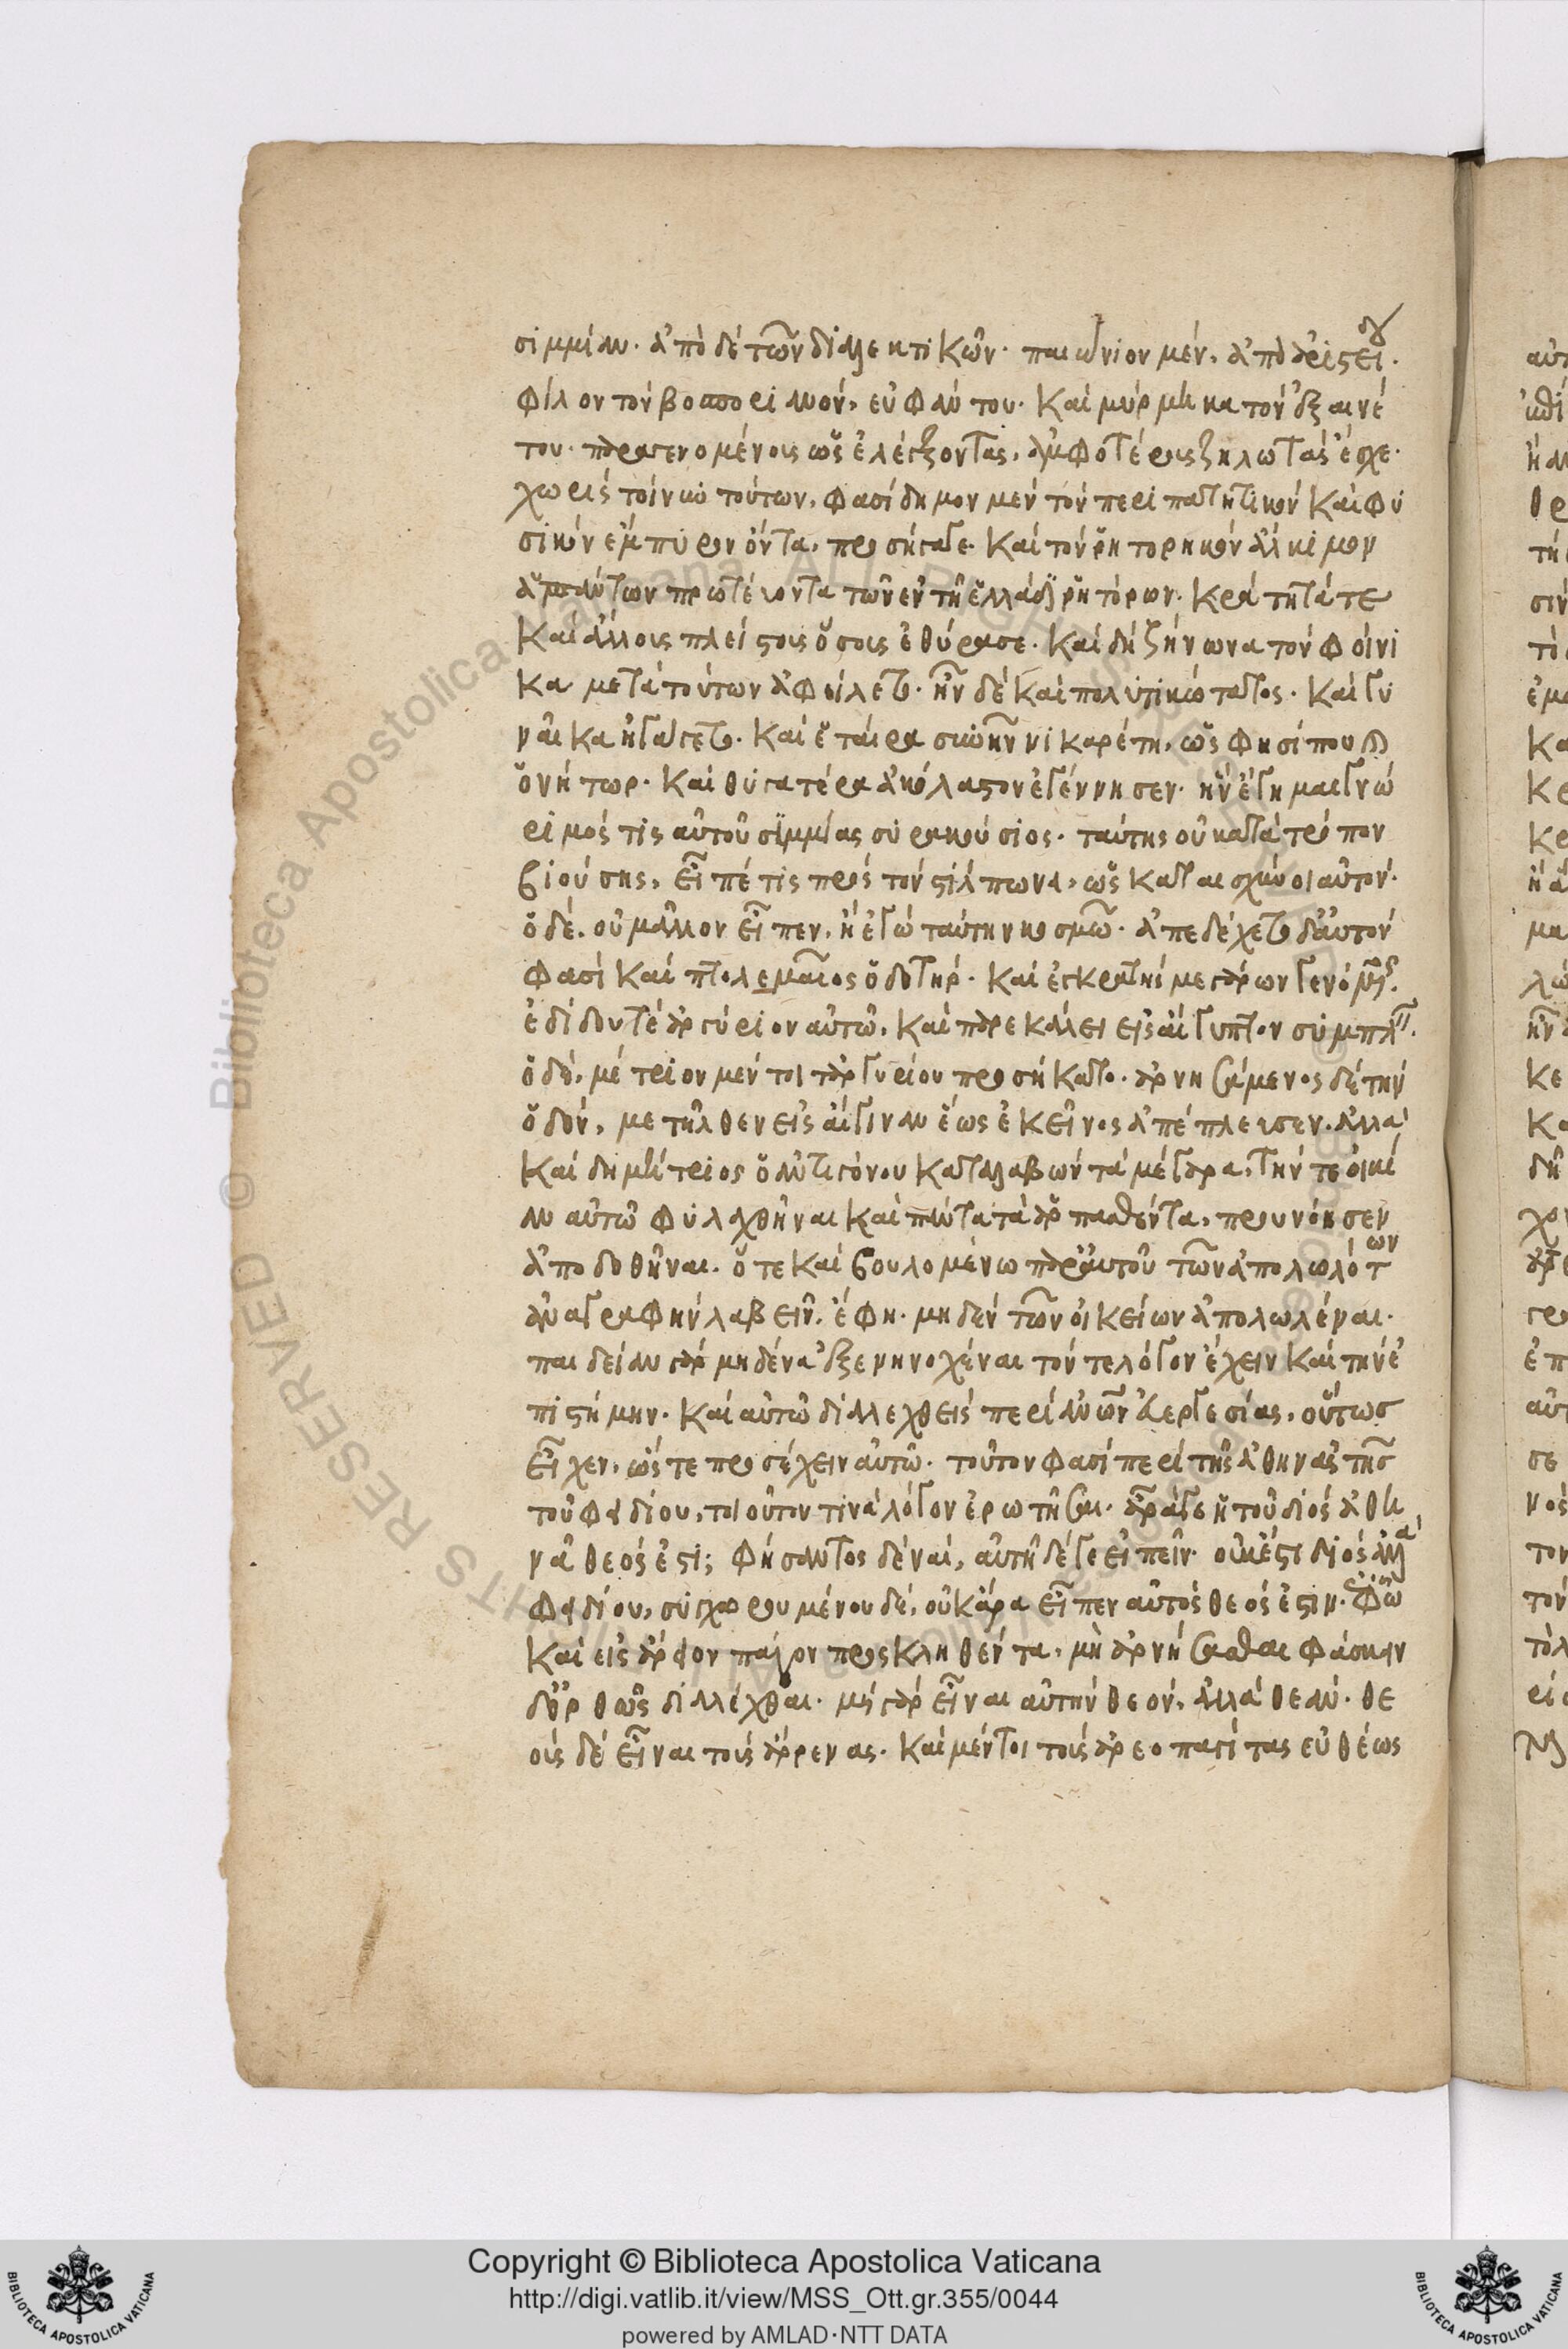 σιμμίαν. ἀπὸ δὲ τῶν διαλεκτικῶν. παιώνιον μέν, ἀπὸ ἀριστείδου.
φίλον τὸν βοσποριανόν, εὐφάντου. καὶ μύρμηκα τὸν ἐξαινέ
του. παραγενομένοις ὡς ἐλέγξοντας, ἀμφοτέροις ζηλωτὰς ἔσχε.
χωρὶς τοίνυν τούτων, φασίδημον μὲν τὸν περιπατητικὸν καὶ φυ
σικῶν ἔμπειρον ὄντα, προσήγαγε. καὶ τὸν ῥητορικὸν ἄλκιμον
ἁπάντων πρωτεύοντα τῶν ἐν τῇ ἑλλάδι ῥητόρων. κράτητά τε
καὶ ἄλλοις πλείστοις ὅσοις ἐθύρασε. καὶ δὴ ζήνωνα τὸν φοίνι
κα μετὰ τούτων ἀφείλετο. ἦν δὲ καὶ πολιτικώτατος. καὶ γυ
ναῖκα ἠγάγετο. καὶ ἑταίρα συνῆν νικαρέτη, ὥς φησί που καὶ
ὀνήτωρ. καὶ θυγατέρα ἀκόλαστον ἐγέννησεν. ἣν ἔγημαι γνώ
ριμός τις αὐτοῦ σιμμίας συρακούσιος. ταύτης οὐ κατὰ τρόπον
βιούσης, εἶπέ τις πρὸς τὸν στίλπωνα, ὡς καταισχύνοι αὐτόν.
ὁ δέ, οὐ μᾶλλον εἶπεν, ἢ ἐγὼ ταύτην κοσμῶ. ἀπεδέχετο δ' αὐτόν
φασί καὶ πτολεμαῖος ὁ σωτήρ. καὶ ἐγκρατὴς μεγάρων γενόμενος
ἐδίδου τέ ἀργύριον αὐτῷ, καὶ παρεκάλει εἰς αἴγυπτον συμπλεῖν.
ὁ δέ, μέτριον μέν τοι τἀργυρίου προσήκατο. ἀρνησάμενος δὲ τὴν
ὁδόν, μετῆλθεν εἰς αἴγιναν ἕως ἐκεῖνος ἀπέπλευσεν. ἀλλὰ
καὶ δημήτριος ὁ ἀντιγόνου καταλαβὼν τὰ μέγαρα, τήν τε οἰκί
αν αὐτῷ φυλαχθῆναι καὶ πάντα τὰ ἁρπασθέντα, προυνόησεν
ἀποδοθῆναι. ὅτε καὶ βουλομένω παρ' αὐτοῦ τῶν ἀπολωλότων
ἀναγραφὴν λαβεῖν, ἔφη. μηδὲν τῶν οἰκείων ἀπολωλέναι.
παιδείαν γὰρ μηδένα ἐξενηνοχέναι τόν τε λόγον ἔχειν καὶ τὴν ἐ
πιστήμην. καὶ αὐτῷ διαλεχθεὶς περὶ ἀνῶν εὐεργεσίας, οὕτως
εἶχεν, ὥστε προσέχειν αὐτῷ. τοῦτον φασὶ περὶ τῆς ἀθηνᾶς τῆς
τοῦ φειδίου, τοιοῦτον τινὰ λόγον ἐρωτῆσαι. ἆρά γε ἡ τοῦ διὸς ἀθη
νᾶ θεός ἐστι; φήσαντος δὲ ναί, αὐτὴ δέ γε εἰπεῖν. οὐκ ἔστι διὸς ἀλλὰ
φειδίου, συγχωρουμένου δέ, οὐκ ἄρα εἶπεν αὐτὸς θεός ἐστιν. ἐφ' ᾧ
καὶ εἰς ἄρειον πάγον προσκληθέντα, μὴ ἀρνήσασθαι φάσκειν
δ' ὀρθῶς διαλέχθαι. μὴ γὰρ εἶναι αὐτὴν θεόν, ἀλλὰ θεάν. θε
οὺς δὲ εἶναι τοὺς ἄρρενας. καὶ μέντοι τοὺς ἀρεοπαγίτας εὐθέως
Copyright © Biblioteca Apostolica Vaticana
http://digi.vatlib.it/view/MSS_Ott.gr.355/0044
powered by AMLAD·NTT DATA